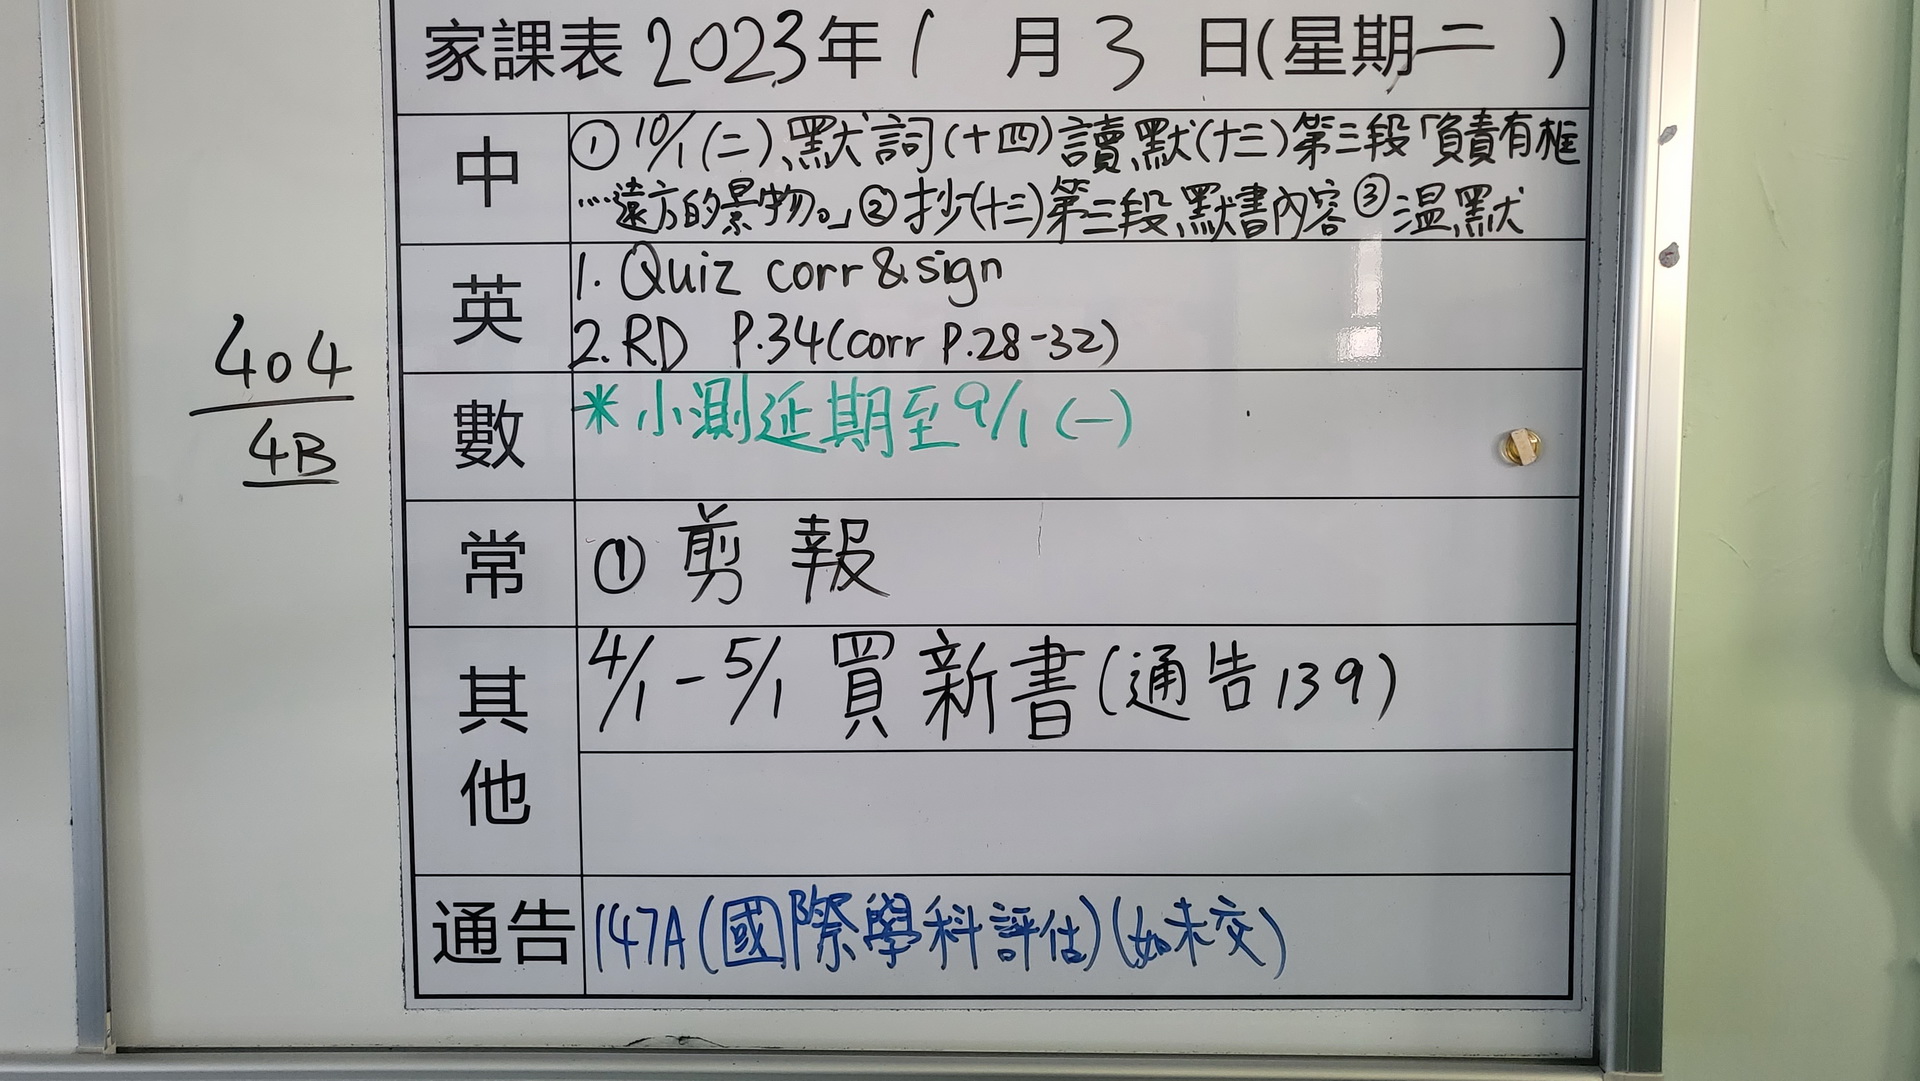 家課表 2023年 1 月 3 日(星期二 )
中
① 10/1 (二) 默詞(十四) 讀默(十三)第三段「負責有框
……遠方的景物。」② 抄(十三)第三段默書內容 ③ 溫默
英
1. Quiz corr & sign
2. RD P.34 (corr P.28-32)
404
4B
數
* 小測延期至 9/1 (一)
常
① 剪報
其他
4/1 - 5/1 買新書 (通告 139)
通告
147A (國際學科評估) (如未交)